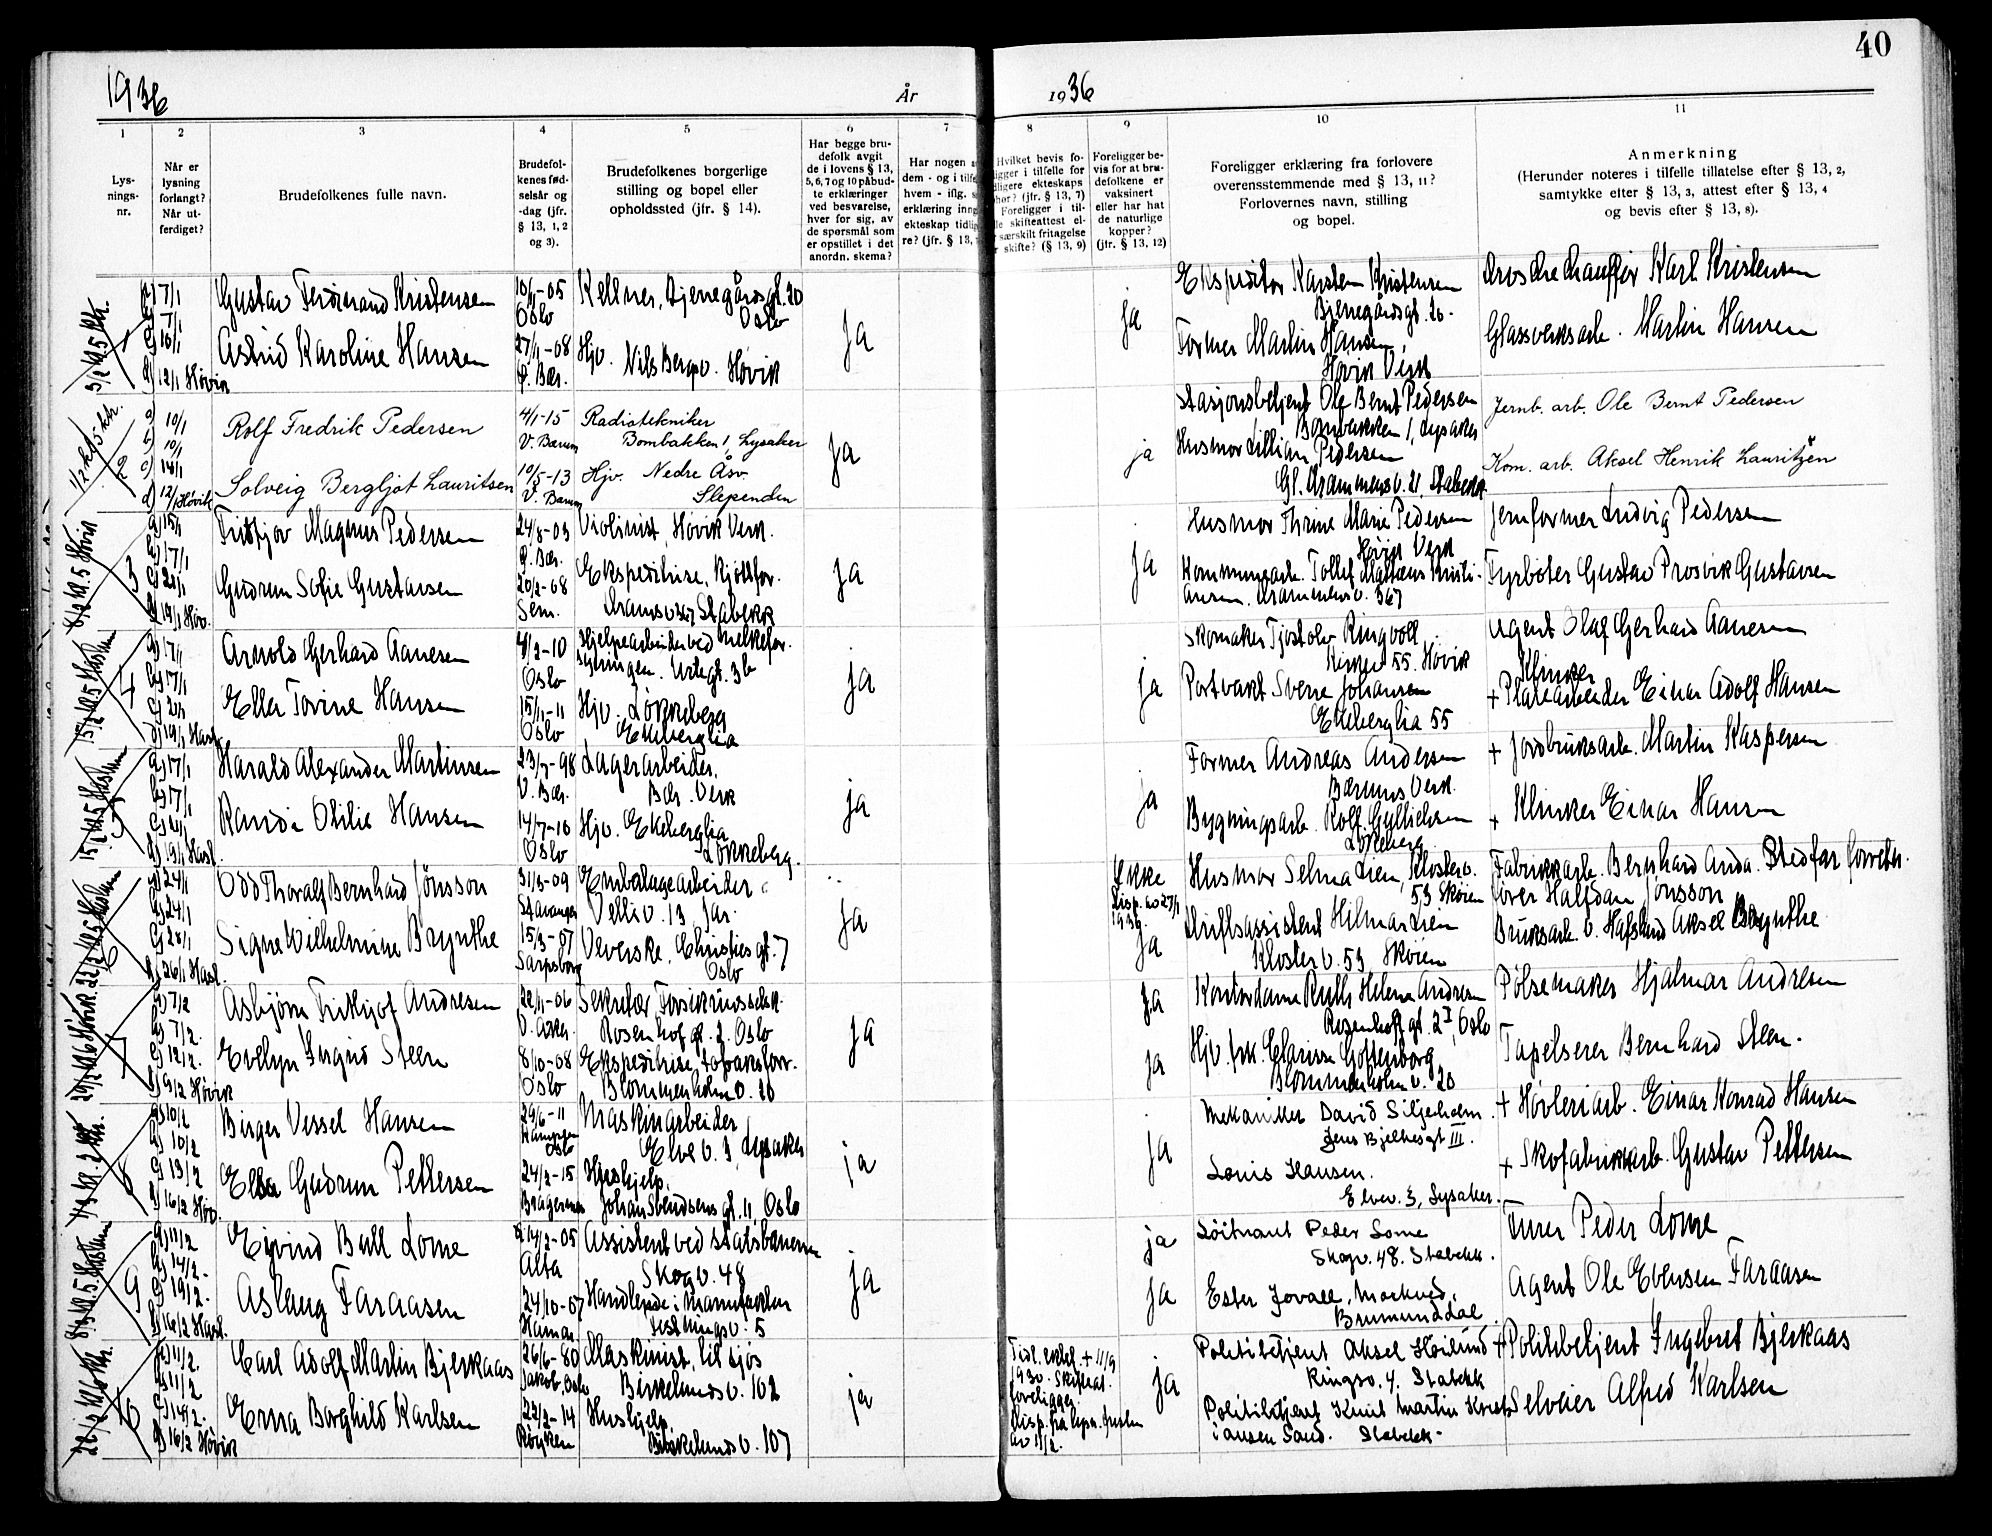 40
1936
År
1936
1
2
3
4
5
6
7
8
9
10
11
Lys-
nings-
nr.
Når er
lysning
forlangt?
Når ut-
ferdiget?
Brudefolkenes fulle navn.
Brudefol-
kenes fød-
selsår og
-dag (jfr.
§ 13, 1, 2
og 3).
Brudefolkenes borgerlige
stilling og bopel eller
opholdssted (jfr. § 14).
Har begge bru-
defolk avgit
de i lovens § 13,
5, 6, 7 og 10 påbud-
te erklæringer
ved besvarelse,
hver for sig, av
de spørsmål som
er opstillet i det
anordn. skema?
Har nogen
dem - og i tilfe
hvem - iflg.
erklæring inng
ekteskap tidlig
re? (jfr. § 13,
Hvilket bevis fo-
ligger i tilfelle for
ekteskaps
(jfr. § 13, 7)
Foreligger i til-
skifteattest el-
særskilt fritagelse
skifte? (§ 13, 9)
Foreligger be-
vis for at bru-
defolkene er
vaksinert
eller har hat
de naturlige
kopper?
(jfr. § 13, 12)
Foreligger erklæring fra forlovere
overensstemmende med § 13, 11?
Forlovernes navn, stilling
og bopel.
Anmerkning
(Herunder noteres i tilfelle tillatelse efter § 13, 2,
samtykke efter § 13, 3, attest efter § 13, 4
og bevis efter § 13, 8).
1
a) 7/1
b) 7/1
c) 10/1
d) 12/1 Høvik
Gustav Ferdinand Kristensen
10/1-05
Oslo
Kellner, Bjerregårdsgt. 20
Oslo
Astrid Karoline Hansen
27/11-08
Ø. Bær.
Hjv. Nils Bergsv. Høvik
ja
ja
Ekspeditør Karsten Kristensen
Bjerregårdsgt. 20.
Former Martin Hansen,
Høvik Verk
Droschechauffør Karl Kristensen
Glassverksarb. Martin Hansen
2
a) 10/1
b) 10/1
c) 14/1
d) 12/1 Høvik
Rolf Fredrik Pedersen
4/1-15
V. Bærum
Radiotekniker
Bombakken 1, Lysaker
Solveig Bergljot Lauritsen
10/5-13
V. Bærum
Hjv. Nedre Åsv.
Slependen
ja
ja
Stasjonsbetjent Ole Bernt Pedersen
Bombakken 1, Lysaker
Husmor Lillian Pedersen
Gl. Drammensv. 21, Stabekk.
Jernb. arb. Ole Bernt Pedersen
Kom. arb. Aksel Henrik Lauritzen
3
a) 15/1
b) 17/1
c) 21/1
d) 19/1 Høv.
Fritjov Magnus Pedersen
24/8-03
Ø. Bær.
Violinist, Høvik Verk.
Gudrun Sofie Gustavsen
20/2-08
Sem.
Ekspeditrise, Kjøttfor.
Dramsv. 367 Stabekk
ja
ja
Husmor Thrine Marie Pedersen
Høvik Verk
Kommunearb. Tollef Mattæus Kristi-
ansen. Drammensv. 367
Jernformer Ludvig Pedersen
Fyrbøter Gustav Prosvik Gustavsen
4
a) 17/1
b) 17/1
c) 21/1
d) 19/1 Hasl.
Arnold Gerhard Aanesen
4/2-10
Oslo
Hjelpearbeider ved melkefor-
syningen. Urtegt. 36
Ella Torine Hansen
15/11-11
Oslo
Hjv. Løkkeberg
Ekeberglia
ja
ja
Skomaker Tjostolv Ringvoll
Kirkev. 55. Høvik
Portvakt Sverre Johansen
Ekeberglia 55
Agent Olaf Gerhard Aanesen
Klinker
+ Platearbeider Einar Adolf Hansen
5
a) 17/1
b) 17/1
c) 21/1
d) 19/1 Hasl.
Harald Alexander Martinsen
23/7-98
V. Bær.
Lagerarbeider.
Bær. Verk
Randi Otilie Hansen
14/7-16
Oslo
Hjv. Ekeberglia
Løkkeberg.
ja
ja
Former Andreas Andersen
Bærums Verk.
Bygningsarb. Rolf Gulliksen
Løkeberg
+ Jordbruksarb. Martin Kaspersen
+ Klinker Einar Hansen
6
a) 24/1
b) 24/1
c) 28/1
d) 26/1 Hasl.
Odd Thoralf Bernhard Jönsson
31/8-09
Stavanger
Emballagearbeider
Velliv. 13, Jar.
Signe Wilhelmine Brynthe
15/3-07
Sarpsborg
Veverske, Christies gt. 7
Oslo
ja
Ikke
Disp. av 27/1
1936.
ja
Husmor Selma Lien, Klosterv.
53 Skøien
Driftsassistent Hilmar Lien
Klosterv. 53, Skøien
Fabrikkarb. Bernhard Anda. Stedfar
Halfdan Jönsson
Bruksarb. v. Hafslund Aksel Brynthe
7
a) 7/2
b) 7/2.
c) 12/2.
d) 9/2 Høvik
Asbjørn Fritjof Andresen
22/11-06
V. Aker.
Sekretær, Forsikringsselsk.
Rosenhof gt. 2. Oslo
Evelyn Ingrid Steen
8/10-08
Oslo
Ekspeditrise, tobakksforr.
Blommenholm v. 20
ja
ja
ja
Kontordame Ruth Helene Andresen
Rosenhoff gt. 2 I, Oslo
Hjv. frk. Clarissa Gottenborg
Blommenholm v. 20
Pølsemaker Hjalmar Andresen
Tapetserer Bernhard Steen.
8
a) 10/2
b) 10/2
c) 13/2
d) 16/2 Høv.
Birger Vessel Hansen
29/6-11
Kampen
Oslo
Maskinarbeider
Elvev. 3, Lysaker
Elsa Gudrun Pettersen
24/2-15
Bragernes
Hushjelp.
Johan Svendsens gt. 11 Oslo
ja
ja
Mekaniker David Siljeholm.
Jens Bjelkesgt III.
Louis Hansen.
Elvev. 3, Lysaker.
+ Høvleriarb. Einar Konrad Hansen
+ Skofabrikkarb. Gustav Pettersen
9
a) 11/2
b) 14/2.
c) 19/2.
d) 16/2 Hasl.
Eyvind Bull Lome
14/2-05
Alta
Assistent ved statsbanene
Skogv. 48
Aslaug Faraasen
24/10-07
Hamar
Handlende i manufaktur
v. 5
ja
ja
ja
Løitnant Peder Lome
Skogv. 48. Stabekk.
Ester Jovall, Morkved,
Brumunddal
Furer Peder Lome
Agent Ole Evensen Faraasen
10
a) 11/2.
b) 11/2
c) 14/2.
d) 16/2 Høvik
Carl Adolf Martin Bjerkaas
26/6-80
Jakob, Oslo
Maskinist, til sjøs
Birkelunds v. 102
Erna Borghild Karlsen
22/2-14
Røyken
Hushjelp.
Birkelunds v. 107
ja
Tidl. ektef. + 11/9
1930. Skifteat.
foreligger.
Disp. fra
av 11/2.
ja
Politibetjent Aksel Høilund
Ringsv. 4. Stabekk
Politibetjent Knut Martin Krist-
iansen Sand. Stabekk.
+ Politibetjent Ingebret Bjerkaas
Selveier Alfred Karlsen